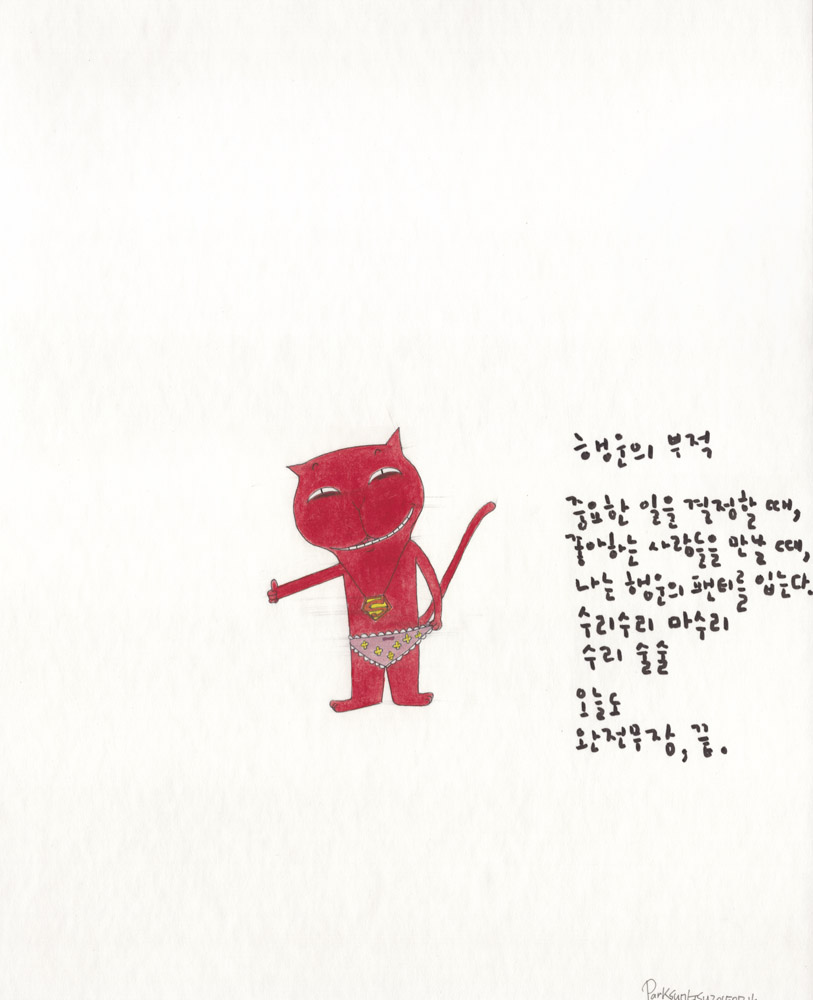 행운의 부적
중요한 일을 결정할 때,
좋아하는 사람들을 만날 때,
나는 행운의 팬티를 입는다.
수리수리 마수리
수리 술술
오늘도
완전무장, 끝.